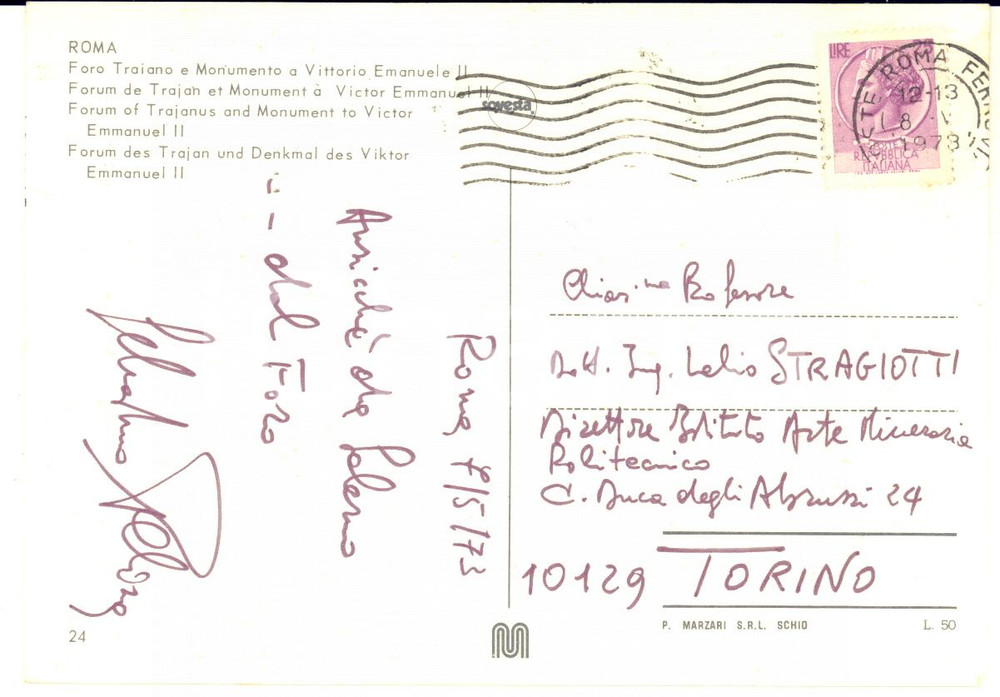 ROMA
Foro Traiano e Monumento a Vittorio Emanuele II
Forum de Trajah et Monument à Victor Emmanuel II
Forum of Trajanus and Monument to Victor
Emmanuel II
Forum des Trajan und Denkmal des Viktor
Emmanuel II
sovesta
LIRE 25
ROMA FERROVIA
12-13
8 V
1973
REPUBBLICA
ITALIANA
Roma 7/5/73
Anziché da Salerno
-- dal Foro
Chiar.mo Professore
Dott. Ing. Lelio STRAGIOTTI
Direttore Istituto Arte Mineraria
Politecnico
C. Duca degli Abruzzi 24
10129 TORINO
24
P. MARZARI S.R.L. SCHIO
L. 50